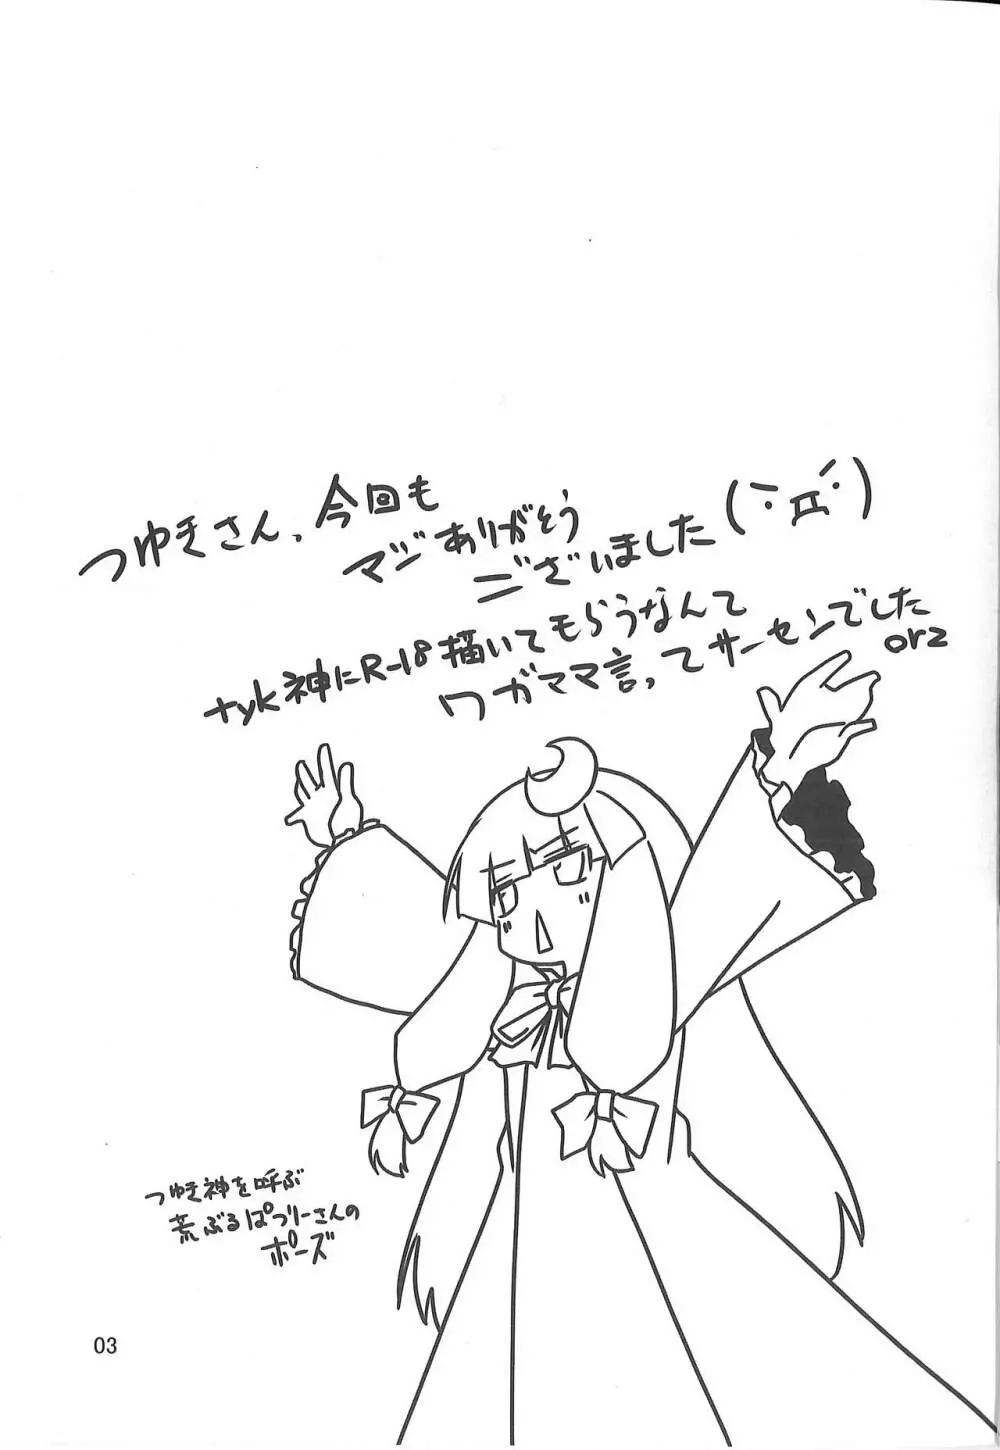 つゆきさん、今回も
マジありがそう
ございました(˙ㅍ˙)
tyk神にR-18描いてもらうなんて
ワガママ言ってサーセンでした
orz
つゆき神を呼ぶ
荒ぶるぱつりーさんの
ポーズ
03